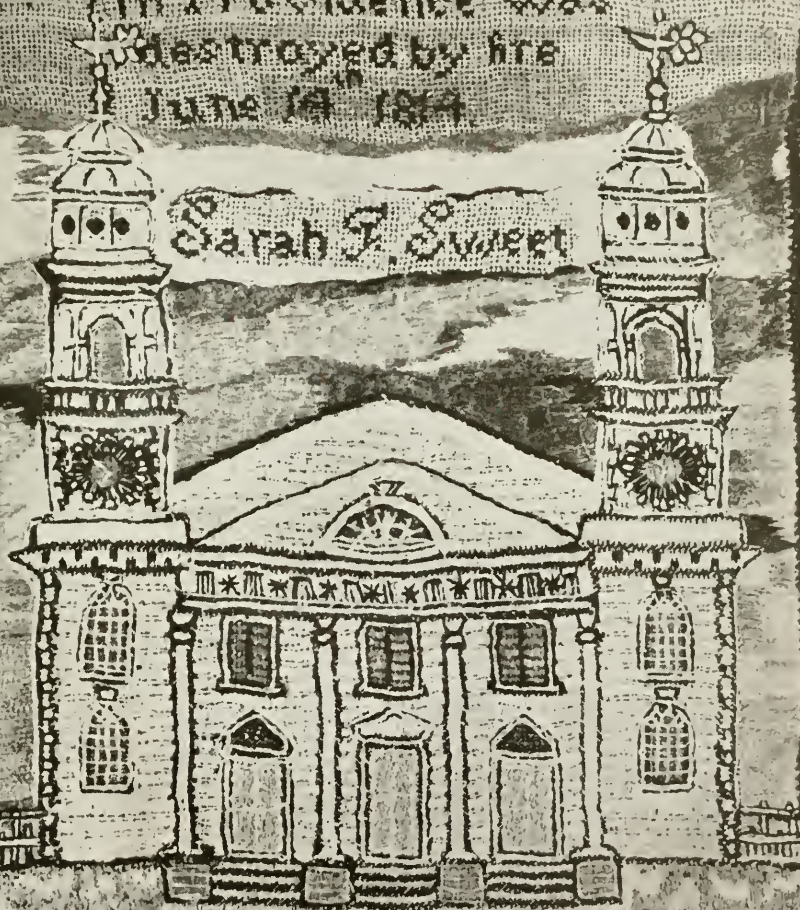 in Providence was
destroyed by fire
June 14th 1814
Sarah F. Sweet